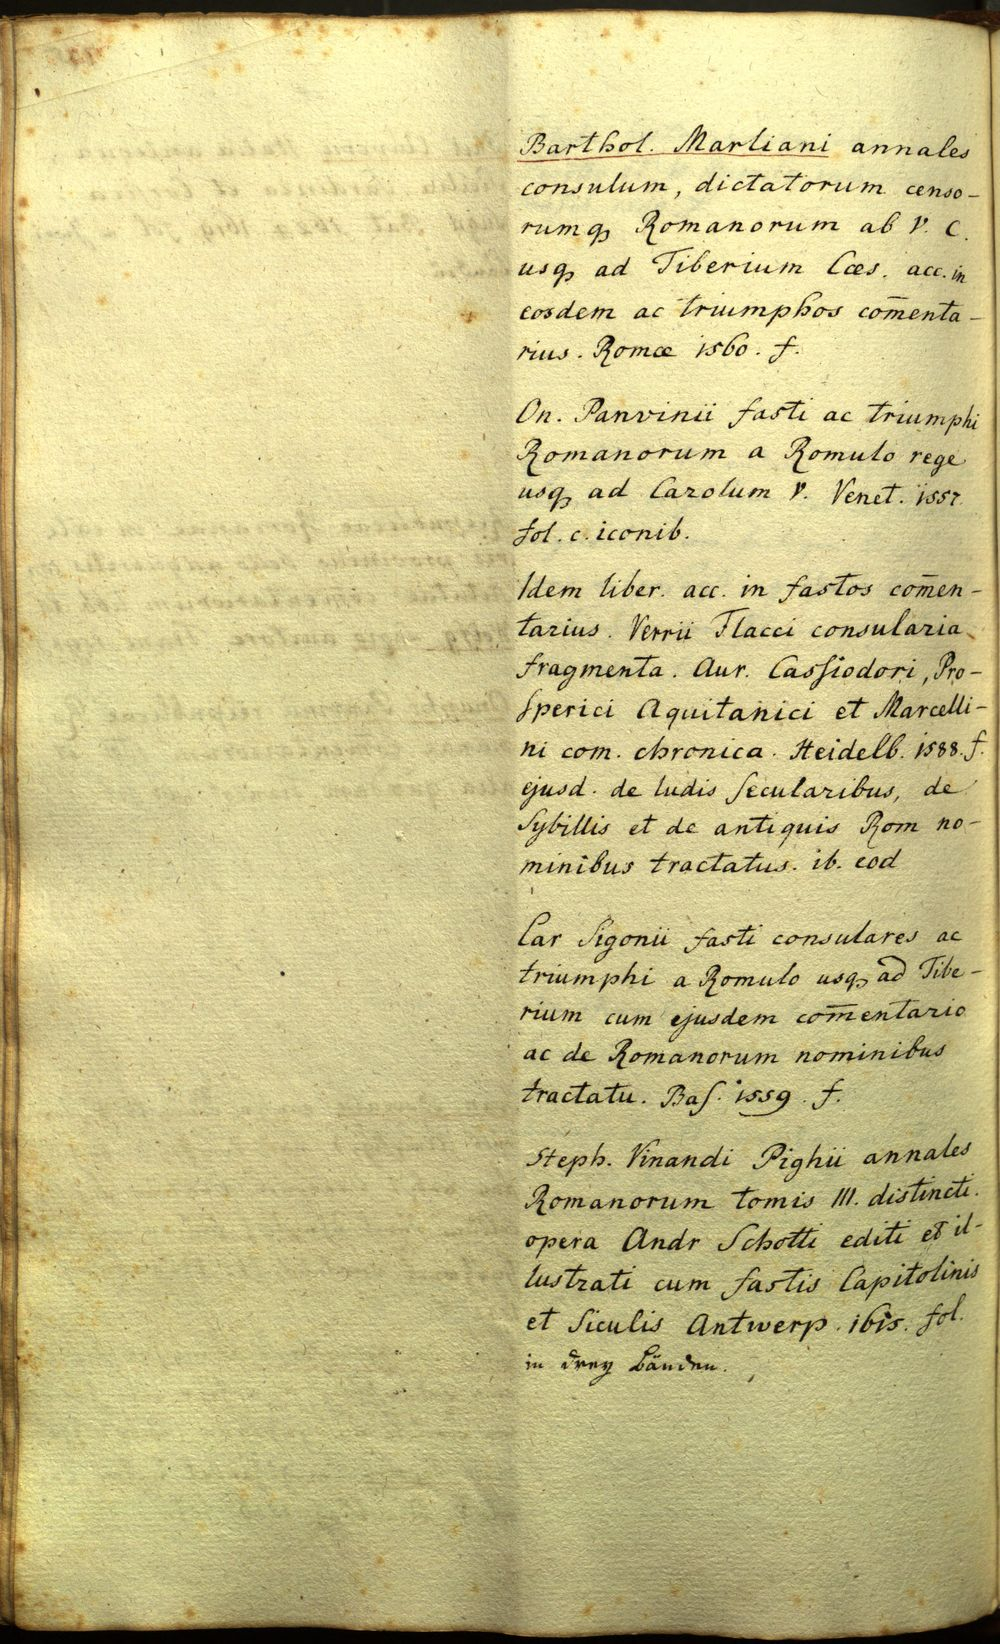 Barthol. Marliani annales
consulum, dictatorum censo-
rumq, Romanorum ab V. C.
usq, ad Tiberium Cæs. acc. in
eosdem ac triumphos com̅enta-
rius. Romæ 1560. f.
On. Panvinii fasti ac triumphi
Romanorum a Romulo rege
usq, ad Carolum V. Venet. 1557.
fol. c. iconib.
Idem liber. acc. in fastos com̅en-
tarius. Verrii Flacci consularia
fragmenta. Aur. Cassiodori, Pro-
sperici Aquitanici et Marcelli-
ni com. chronica. Heidelb. 1588. f.
ejusd. de ludis secularibus, de
Sybillis et de antiquis Rom no-
minibus tractatus. ib. eod
Car Sigonii fasti consulares ac
triumphi a Romulo usq, ad Tibe-
rium cum ejusdem com̅entario
ac de Romanorum nominibus
tractatu. Bas. 1559. f.
Steph. Vinandi Pighii annales
Romanorum tomis III. distincti.
opera Andr Schotti editi et il-
lustrati cum fastis Capitolinis
et Siculis Antwerp. 1615. fol.
in drey Bänden.